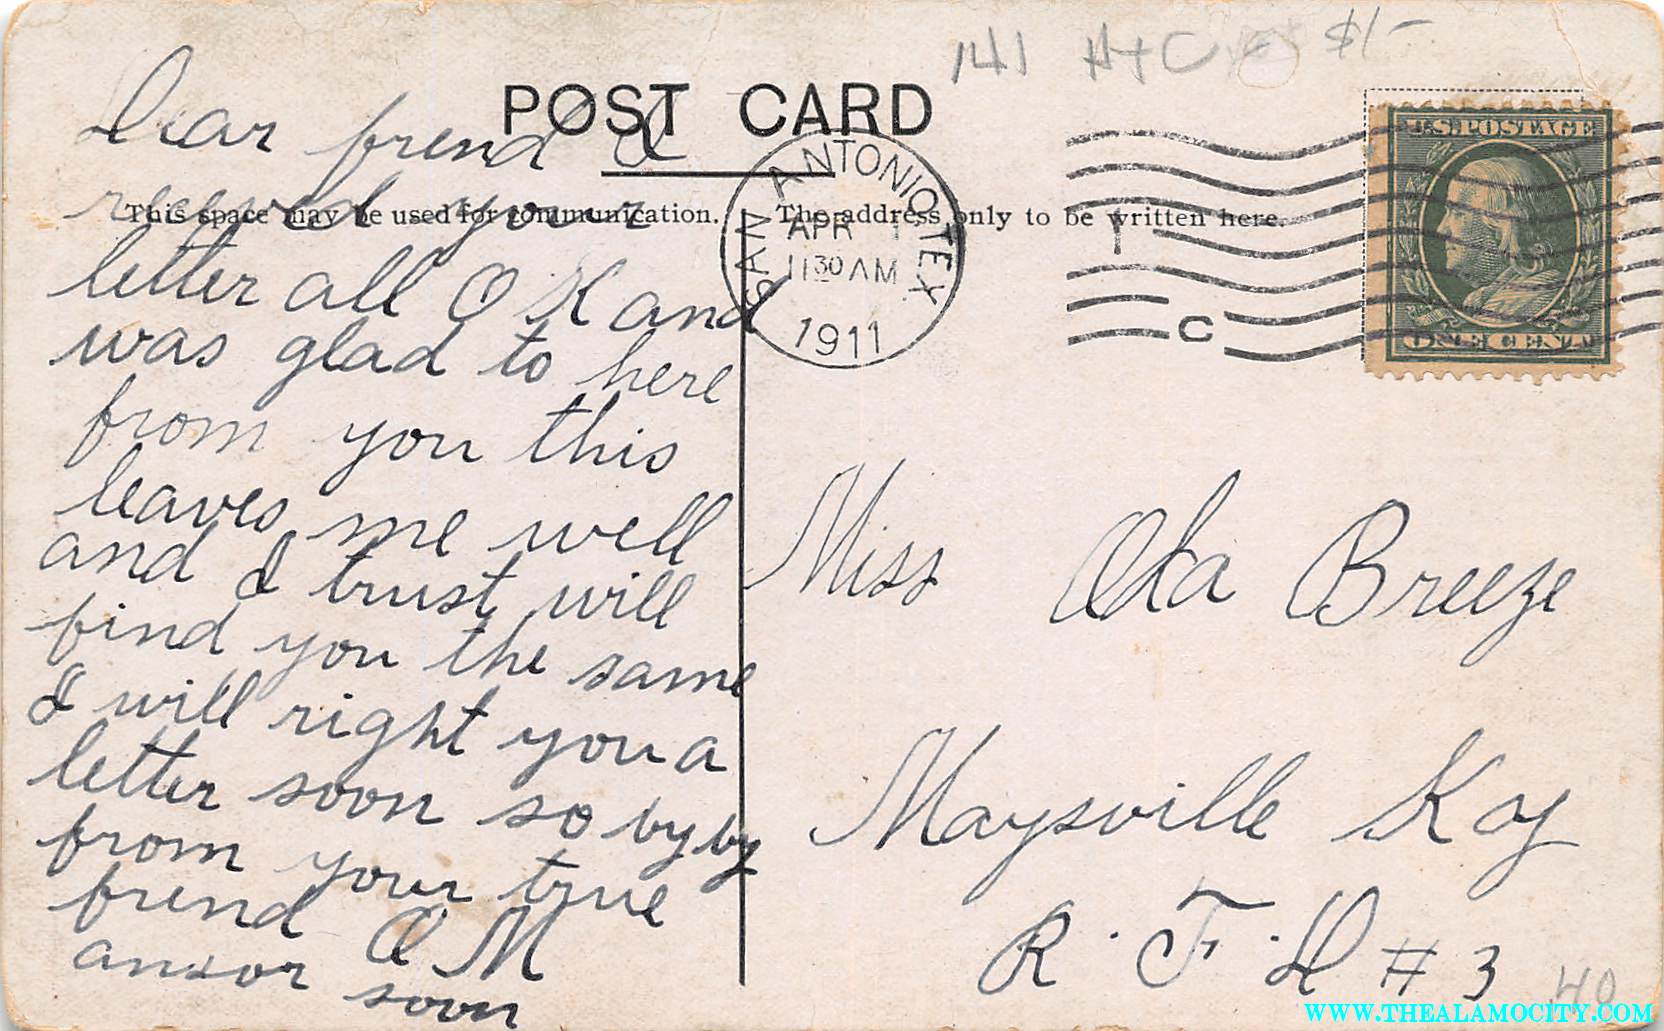 141 $1-
POST CARD
This space may be used for communication.
The address only to be written here.
SAN ANTONIO, TEX
APR 1
11 30 AM
1911
C
U.S. POSTAGE
ONE CENT
Dear frend I
received your
letter all O K and
was glad to here
from you this
leaves me well
and I trust will
find you the same
I will right you a
letter soon so by by
from your true
frend O M
ansor soon
Miss Ola Breeze
Maysville Ky
R. F. D # 3
40
WWW.THEALAMOCITY.COM